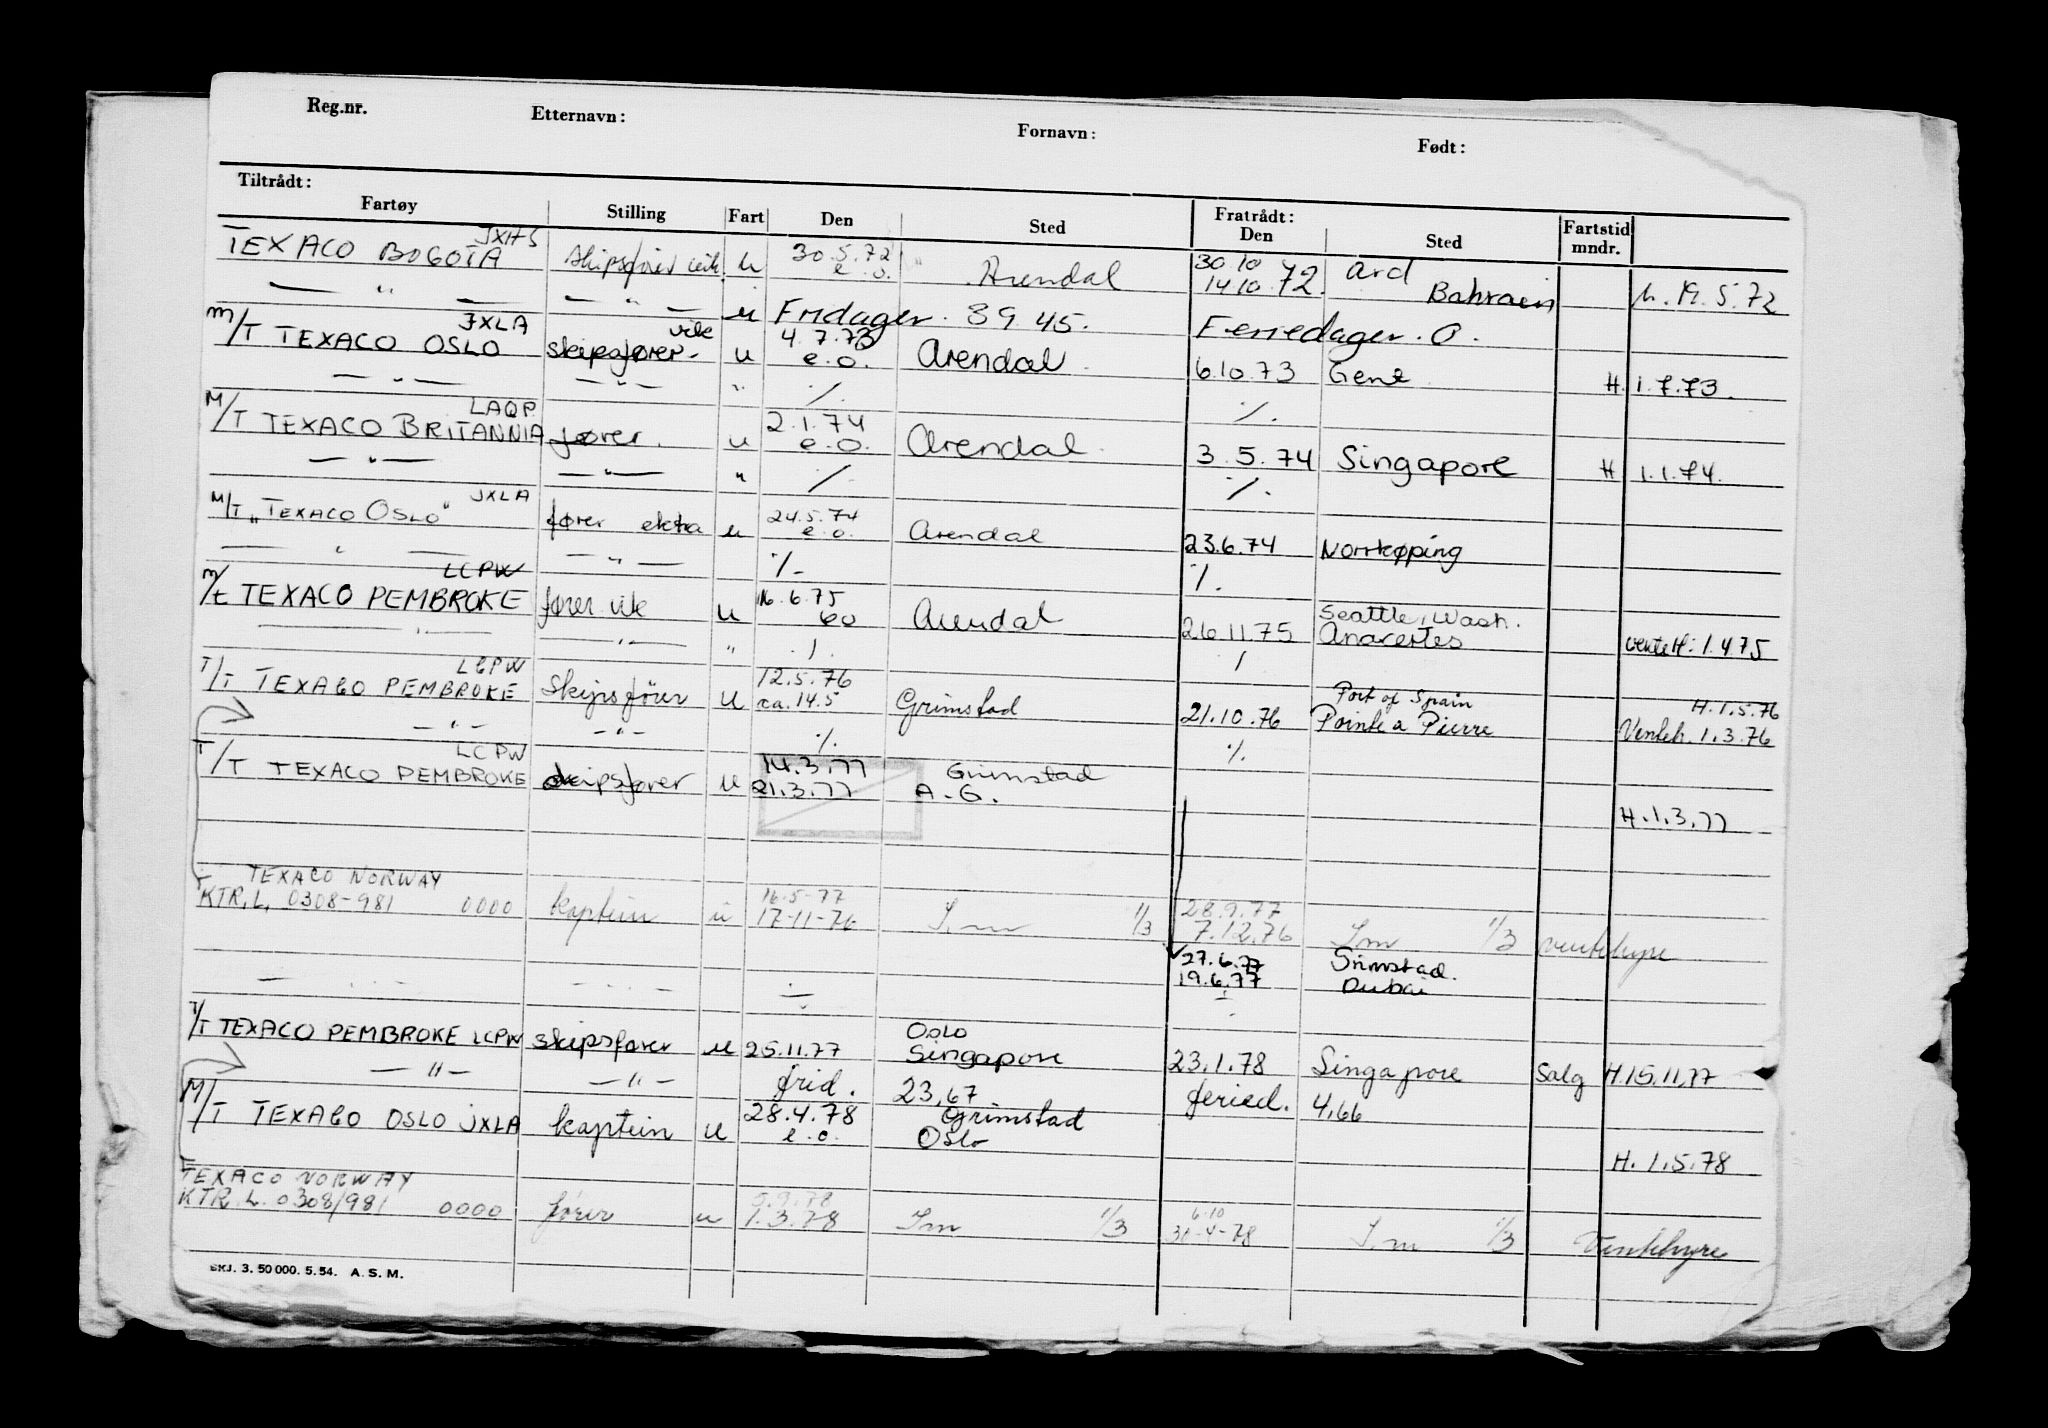 Reg.nr. Etternavn: Fornavn: Født:
Tiltrådt: Fratrådt:
Fartøy Stilling Fart Den Sted Den Sted Fartstid mndr.
JXHS 30.5.72 30 10 Ard
TEXACO BOGOTA skipsfører vik. u e.o. Arendal 14 10 72. Bahrain h. 19.5.72
— " — — " — u Fridager. 39.45. Feriedager. 0.
JXLA vik 4.7.73
M/T TEXACO OSLO skipsfører u e.o. Arendal 6.10.73 Gent H. 1.7.73.
— " — — " — " ./. ./.
LAQP. 2.1.74
M/T TEXACO BRITANNIA fører. u e.o. Arendal 3.5.74 Singapore H 1.1.74.
— " — — " — " ./. ./.
JXLA 24.5.74
M/T "TEXACO OSLO" fører ekstra u e.o. Arendal 23.6.74 Norrkøping
— " — — " — ./. ./.
LCPW 16.6.75 Seattle, Wash.
M/T TEXACO PEMBROKE fører vik u eo Arendal 26.11.75 Anacortes venteH: 1.4.75
— " — — " — " ./. /
LCPW 12.5.76 Port of Spain H.1.5.76
T/T TEXACO PEMBROKE Skipsfører u ca. 14.5 Grimstad 21.10.76 Pointe a Pierre Venteh. 1.3.76
— " — — " — ./. ./.
LCPW 14.3.77 Grimstad
T/T TEXACO PEMBROKE skipsfører u 21.3.77 A.G. H.1.3.77
TEXACO NORWAY 16.5-77 28.9.77
KTR.L. 0308-981 0000 kaptein u 17-11-76 I.m 1/3 7.12.76 I m 1/3 ventehyre
27.6.77 Grimstad.
19.6.77 Dubai
— " — — " —
Oslo
T/T TEXACO PEMBROKE LCPW skipsfører u 25.11.77 Singapore 23.1.78 Singapore Salg H.15.11.77
— " — — " — frid. 23,67 feried. 4,66
28.4.78 Grimstad
M/T TEXACO OSLO JXLA kaptein u e.o. Oslo H. 1.5.78
TEXACO NORWAY 5.9.78 6.10
KTR.L. 0308/981 0000 fører u 1.3.78 I m 1/3 30-4-78 I.m 1/3 Ventehyre
SKJ. 3. 50 000. 5.54. A. S. M.